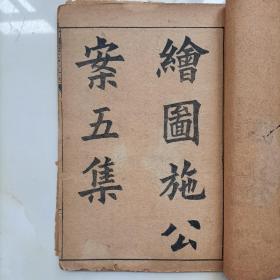 繪圖施公
案五集